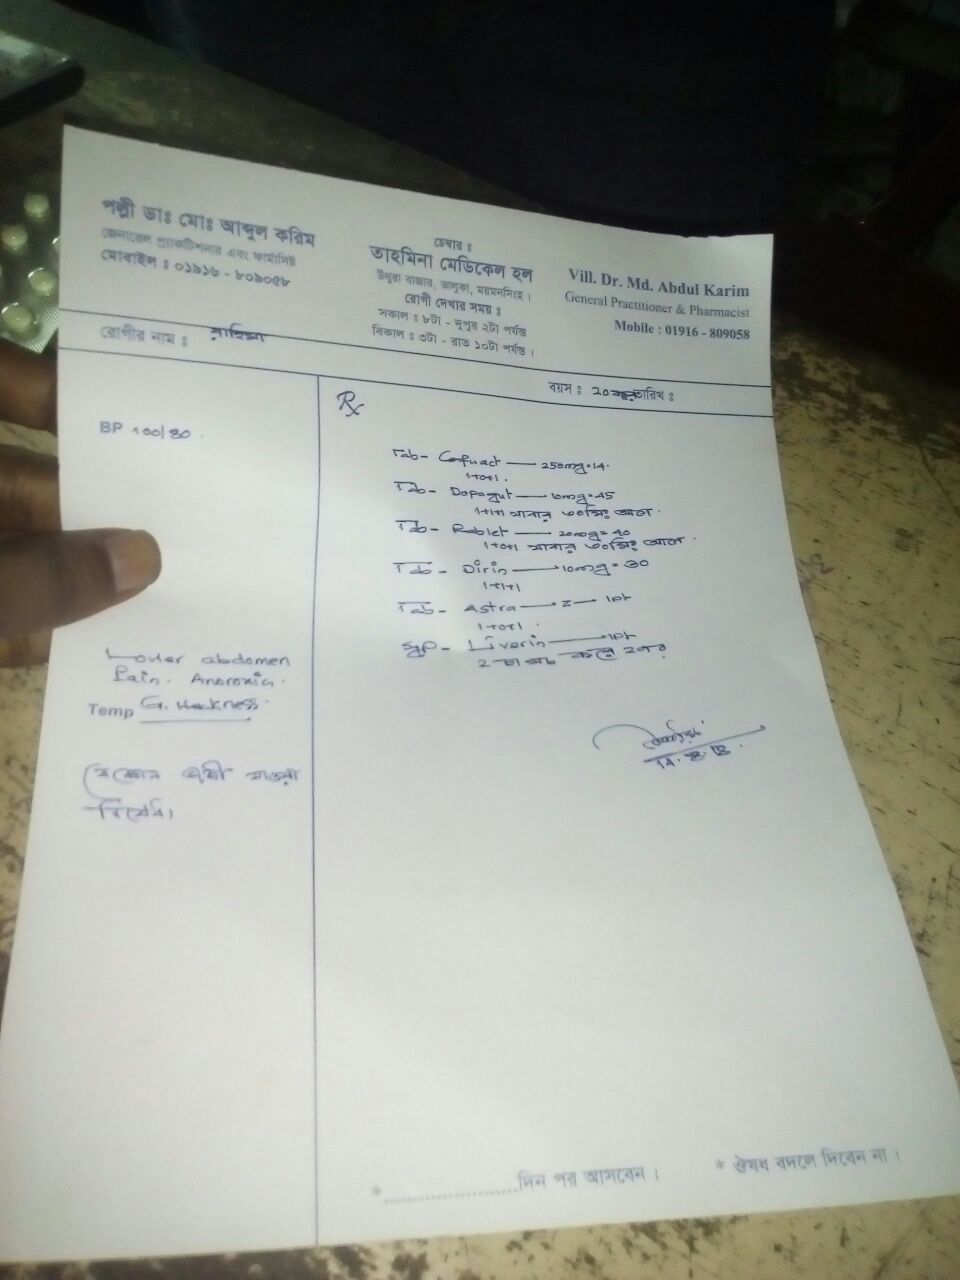 পল্লী ডাঃ মোঃ আব্দুল করিম
জেনারেল প্র্যাকটিশনার এবং ফার্মাসিষ্ট
মোবাইল : ০১৯১৬ - ৮০৯০৫৮
চেম্বার :
তাহমিনা মেডিকেল হল
উথুরা বাজার, ভালুকা, ময়মনসিংহ।
রোগী দেখার সময় :
সকাল : ৮টা - দুপুর ২টা পর্যন্ত
বিকাল : ৩টা - রাত ১০টা পর্যন্ত।
Vill. Dr. Md. Abdul Karim
General Practitioner & Pharmacist
Mobile : 01916 - 809058
রোগীর নাম :
বয়স : 20 তারিখ :
BP 100/80.
Lower abdomen
Pain. Anorexia.
Temp G. Weakness.
নিষেধ।
Rx
Tab- 250mg=14.
1+0+1.
Tab- Dopagut — 10mg=45
1+1+1 খাবার ৩০মিঃ আগে.
Tab- Rablet — 20mg=
1+0+1 খাবার ৩০মিঃ আগে.
Tab- Dirin — 10mg=30
1+1+1
Tab- Astra — Z —
1+0+1.
Syp- Liverin —
2 চামচ করে ২বার
14.8.18.
* ......................দিন পর আসবেন।
* ঔষধ বদলে দিবেন না।